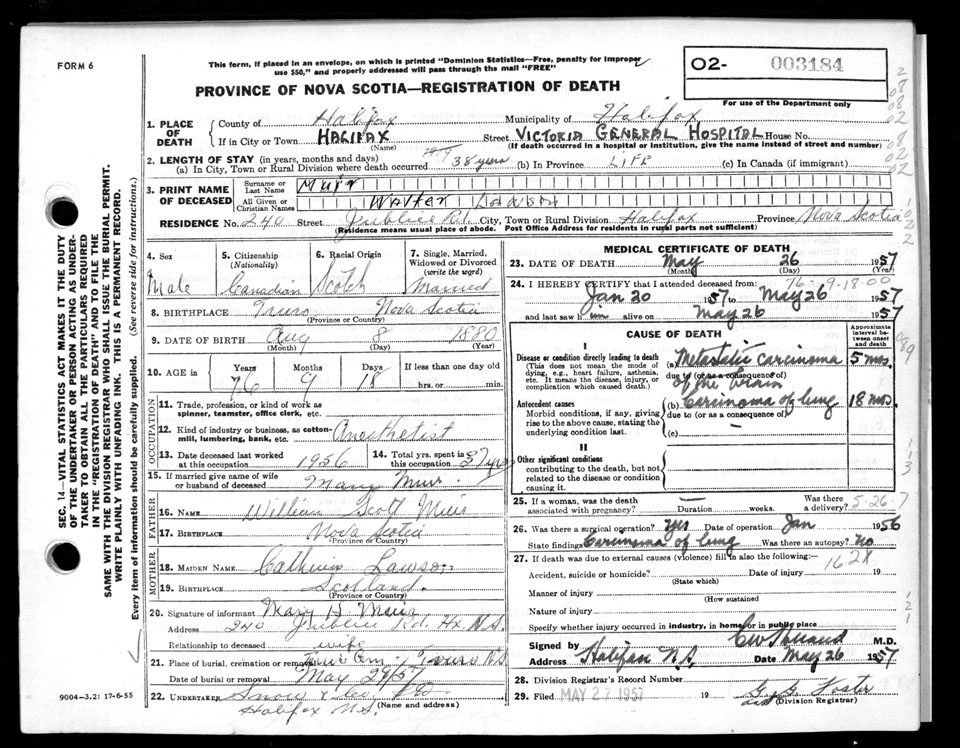 FORM 6
This form, if placed in an envelope, on which is printed "Dominion Statistics—Free, penalty for improper
use $50," and properly addressed will pass through the mail "FREE"
O2- 003184
For use of the Department only
PROVINCE OF NOVA SCOTIA—REGISTRATION OF DEATH
1. PLACE OF DEATH
County of Halifax Municipality of Halifax
If in City or Town HALIFAX (Name) Street VICTORIA GENERAL HOSPITAL House No.
(If death occurred in a hospital or institution, give the name instead of street and number)
2. LENGTH OF STAY (in years, months and days)
(a) In City, Town or Rural Division where death occurred 38 years (b) In Province LIFE (c) In Canada (if immigrant)
3. PRINT NAME OF DECEASED
Surname or Last Name Muir
All Given or Christian Names Walter Lawson
RESIDENCE No. 240 Street Jubilee Rd. City, Town or Rural Division Halifax Province Nova Scotia
(Residence means usual place of abode. Post Office Address for residents in rural parts not sufficient)
4. Sex Male
5. Citizenship (Nationality) Canadian
6. Racial Origin Scotch
7. Single, Married, Widowed or Divorced (write the word) Married
8. BIRTHPLACE Truro Nova Scotia
(Province or Country)
9. DATE OF BIRTH Aug 8 1880
(Month) (Day) (Year)
10. AGE Years 76 Months 9 Days 18 If less than one day old
hrs. or min.
OCCUPATION
11. Trade, profession, or kind of work as
spinner, teamster, office clerk, etc.
12. Kind of industry or business, as cotton-
mill, lumbering, bank, etc. Anesthetist
13. Date deceased last worked
at this occupation 1956
14. Total yrs. spent in
this occupation 37 yrs
15. If married give name of wife
or husband of deceased Mary Muir
FATHER
16. NAME William Scott Muir
17. BIRTHPLACE Nova Scotia
(Province or Country)
MOTHER
18. MAIDEN NAME Catherine Lawson
19. BIRTHPLACE Scotland
(Province or Country)
20. Signature of informant Mary H. Muir
Address 240 Jubilee Rd. Hx. N.S.
Relationship to deceased wife
21. Place of burial, cremation or removal Truro N.S
Date of burial or removal May 29/57
22. UNDERTAKER Snow & Co. Ltd
Halifax N.S. (Name and address)
MEDICAL CERTIFICATE OF DEATH
23. DATE OF DEATH May 26 1957
(Month) (Day) (Year)
24. I HEREBY CERTIFY that I attended deceased from:
76-9-18-00
Jan 20 1957 to May 26 1957
and last saw him alive on May 26 1957
CAUSE OF DEATH
Approximate interval between onset and death
I
Disease or condition directly leading to death
(This does not mean the mode of
dying, e.g., heart failure, asthenia,
etc. It means the disease, injury, or
complication which caused death.)
(a) Metastatic carcinoma 5 mos.
due to (or as a consequence of)
of the brain
Antecedent causes
Morbid conditions, if any, giving
rise to the above cause, stating the
underlying condition last.
(b) Carcinoma of lung 18 mos.
due to (or as a consequence of)
(c) —
II
Other significant conditions
contributing to the death, but not
related to the disease or condition
causing it.
25. If a woman, was the death
associated with pregnancy? — Duration weeks. Was there
a delivery?
5-26-7
26. Was there a surgical operation? Yes Date of operation Jan 1956
State findings Carcinoma of lung Was there an autopsy? No
27. If death was due to external causes (violence) fill in also the following:—
Accident, suicide or homicide? (State which) Date of injury 19
162X
Manner of injury
(How sustained)
Nature of injury
Specify whether injury occurred in industry, in home or in public place
Signed by M.D.
Address Halifax N.S. Date May 26 1957
28. Division Registrar's Record Number
29. Filed MAY 27 1957 19 G. G. Foster
(Division Registrar)
SEC. 14—VITAL STATISTICS ACT MAKES IT THE DUTY
OF THE UNDERTAKER OR PERSON ACTING AS UNDER-
TAKER TO OBTAIN ALL THE PARTICULARS REQUIRED
IN THE "REGISTRATION OF DEATH" AND TO FILE THE
SAME WITH THE DIVISION REGISTRAR WHO SHALL ISSUE THE BURIAL PERMIT.
WRITE PLAINLY WITH UNFADING INK. THIS IS A PERMANENT RECORD.
Every item of information should be carefully supplied. (See reverse side for instructions.)
9004-3.21: 17-6-55